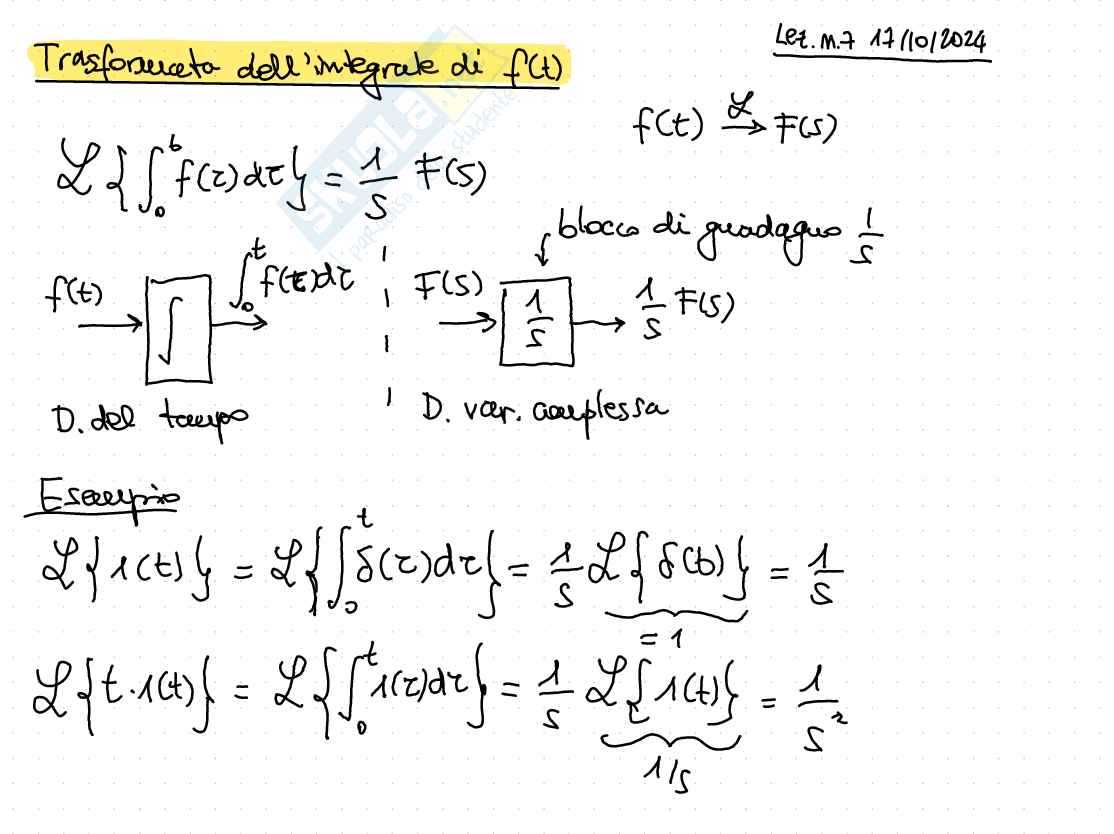 Lez. n.7 17/10/2024
Trasformata dell'integrale di f(t)
f(t) ℒ→ F(s)
ℒ{∫₀ᵗ f(τ)dτ} = 1/s F(s)
blocco di guadagno 1/s
f(t) → ∫ → ∫₀ᵗ f(τ)dτ | F(s) → 1/s → 1/s F(s)
D. del tempo | D. var. complessa
Esempio
ℒ{1(t)} = ℒ{∫₀ᵗ δ(τ)dτ} = 1/s ℒ{δ(t)} = 1/s
= 1
ℒ{t·1(t)} = ℒ{∫₀ᵗ 1(τ)dτ} = 1/s ℒ{1(t)} = 1/s²
1/s